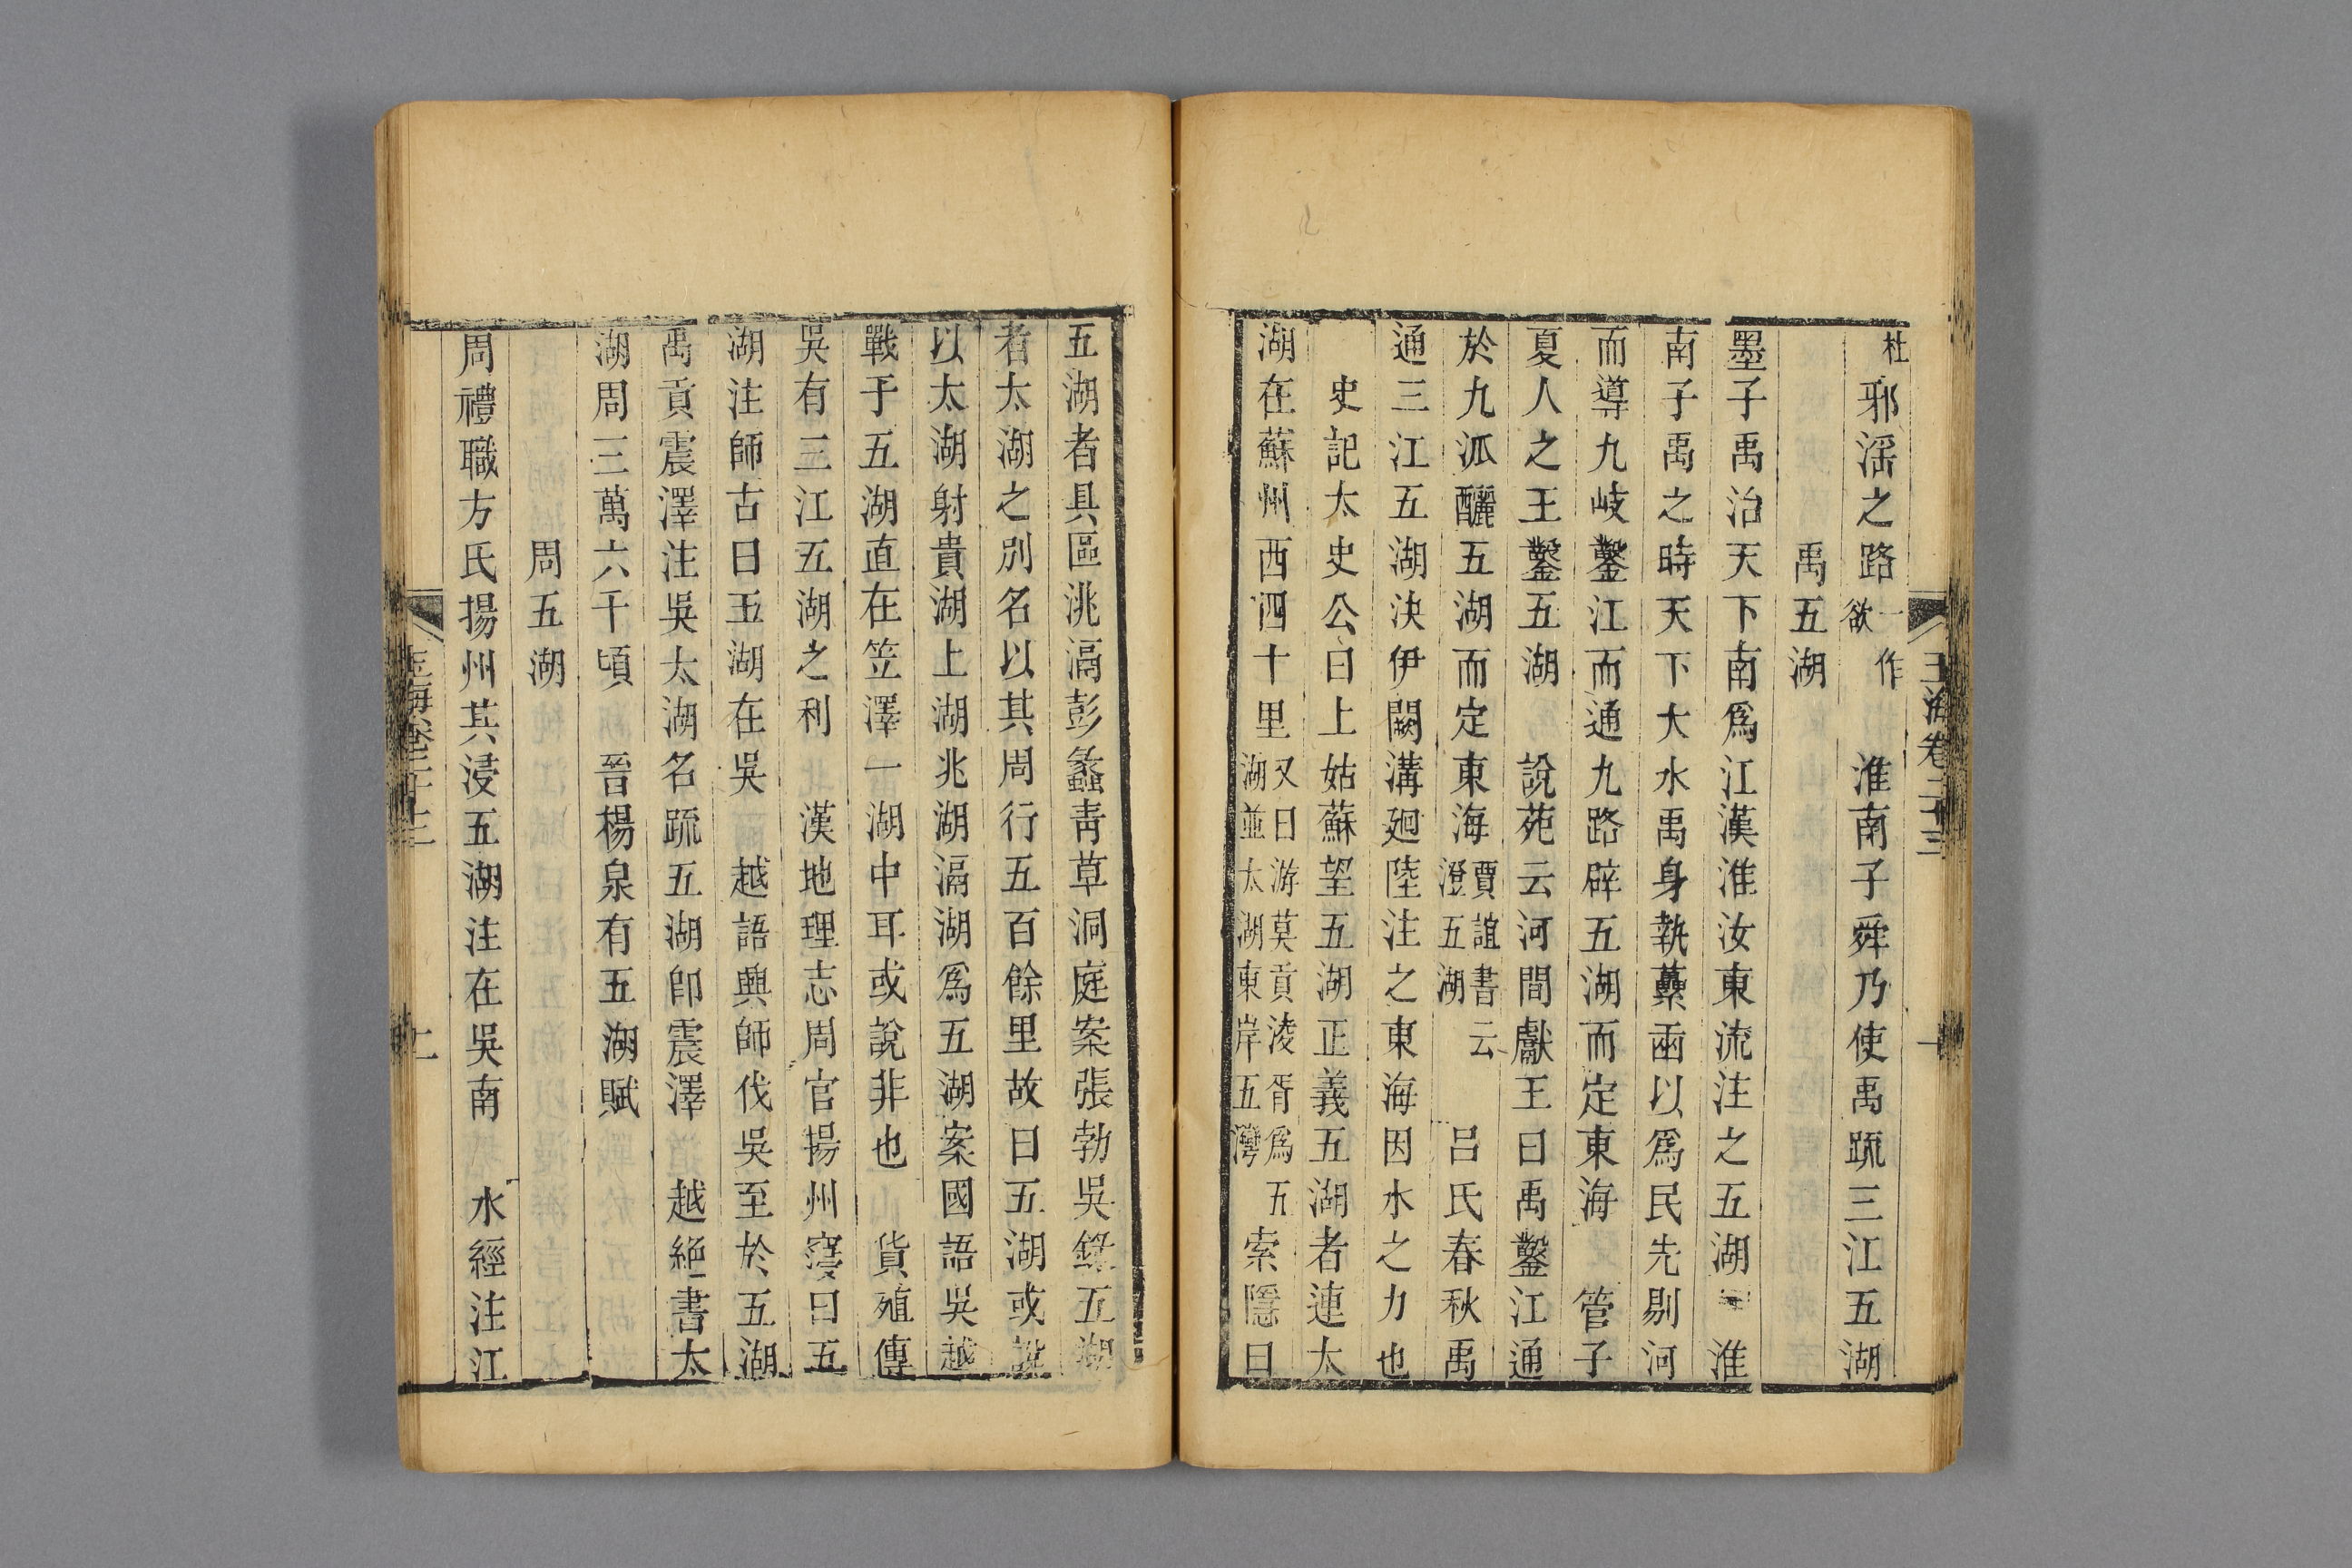 玉海卷二十三
杜邪淫之路一作欲 淮南子舜乃使禹䟽三江五湖
禹五湖
墨子禹治天下南爲江漢淮汝東流注之五湖 淮
南子禹之時天下大水禹身執虆臿以爲民先剔河
而導九岐鑿江而通九路辟五湖而定東海 管子
夏人之王鑿五湖 說苑云河間獻王曰禹鑿江通
於九派釃五湖而定東海賈誼書云澄五湖 呂氏春秋禹
通三江五湖決伊闕溝廻陸注之東海因水之力也
史記太史公曰上姑蘇望五湖正義五湖者連太
湖在蘇州西四十里又曰游莫貢淩胥爲五湖並太湖東岸五灣 索隱曰
五湖者具區洮滆彭蠡靑草洞庭案張勃吳錄五湖
者太湖之別名以其周行五百餘里故曰五湖或說
以太湖射貴湖上湖洮湖滆湖爲五湖案國語吳越
戰于五湖直在笠澤一湖中耳或說非也 貨殖傳
吳有三江五湖之利 漢地理志周官揚州寖曰五
湖注師古曰五湖在吳 越語興師伐吳至於五湖
禹貢震澤注吳太湖名䟽五湖卽震澤 越絕書太
湖周三萬六千頃 晉楊泉有五湖賦
周五湖
周禮職方氏揚州其浸五湖注在吳南 水經注江
玉海卷二十三